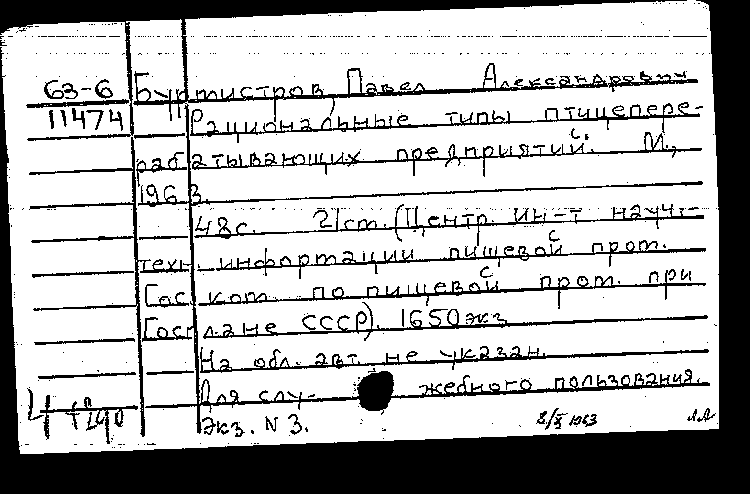 63-6 Бурмистров, Павел Александрович
11474 Рациональные типы птицепере-
рабатывающих предприятий. М.,
1963.
48с. 21см. (Центр. ин-т науч.-
техн. информации пищевой пром.
Гос. ком. по пищевой пром. при
Госплане СССР). 1650экз.
На обл. авт. не указан.
Для слу- жебного пользования.
Экз. N 3. 8/X 1963